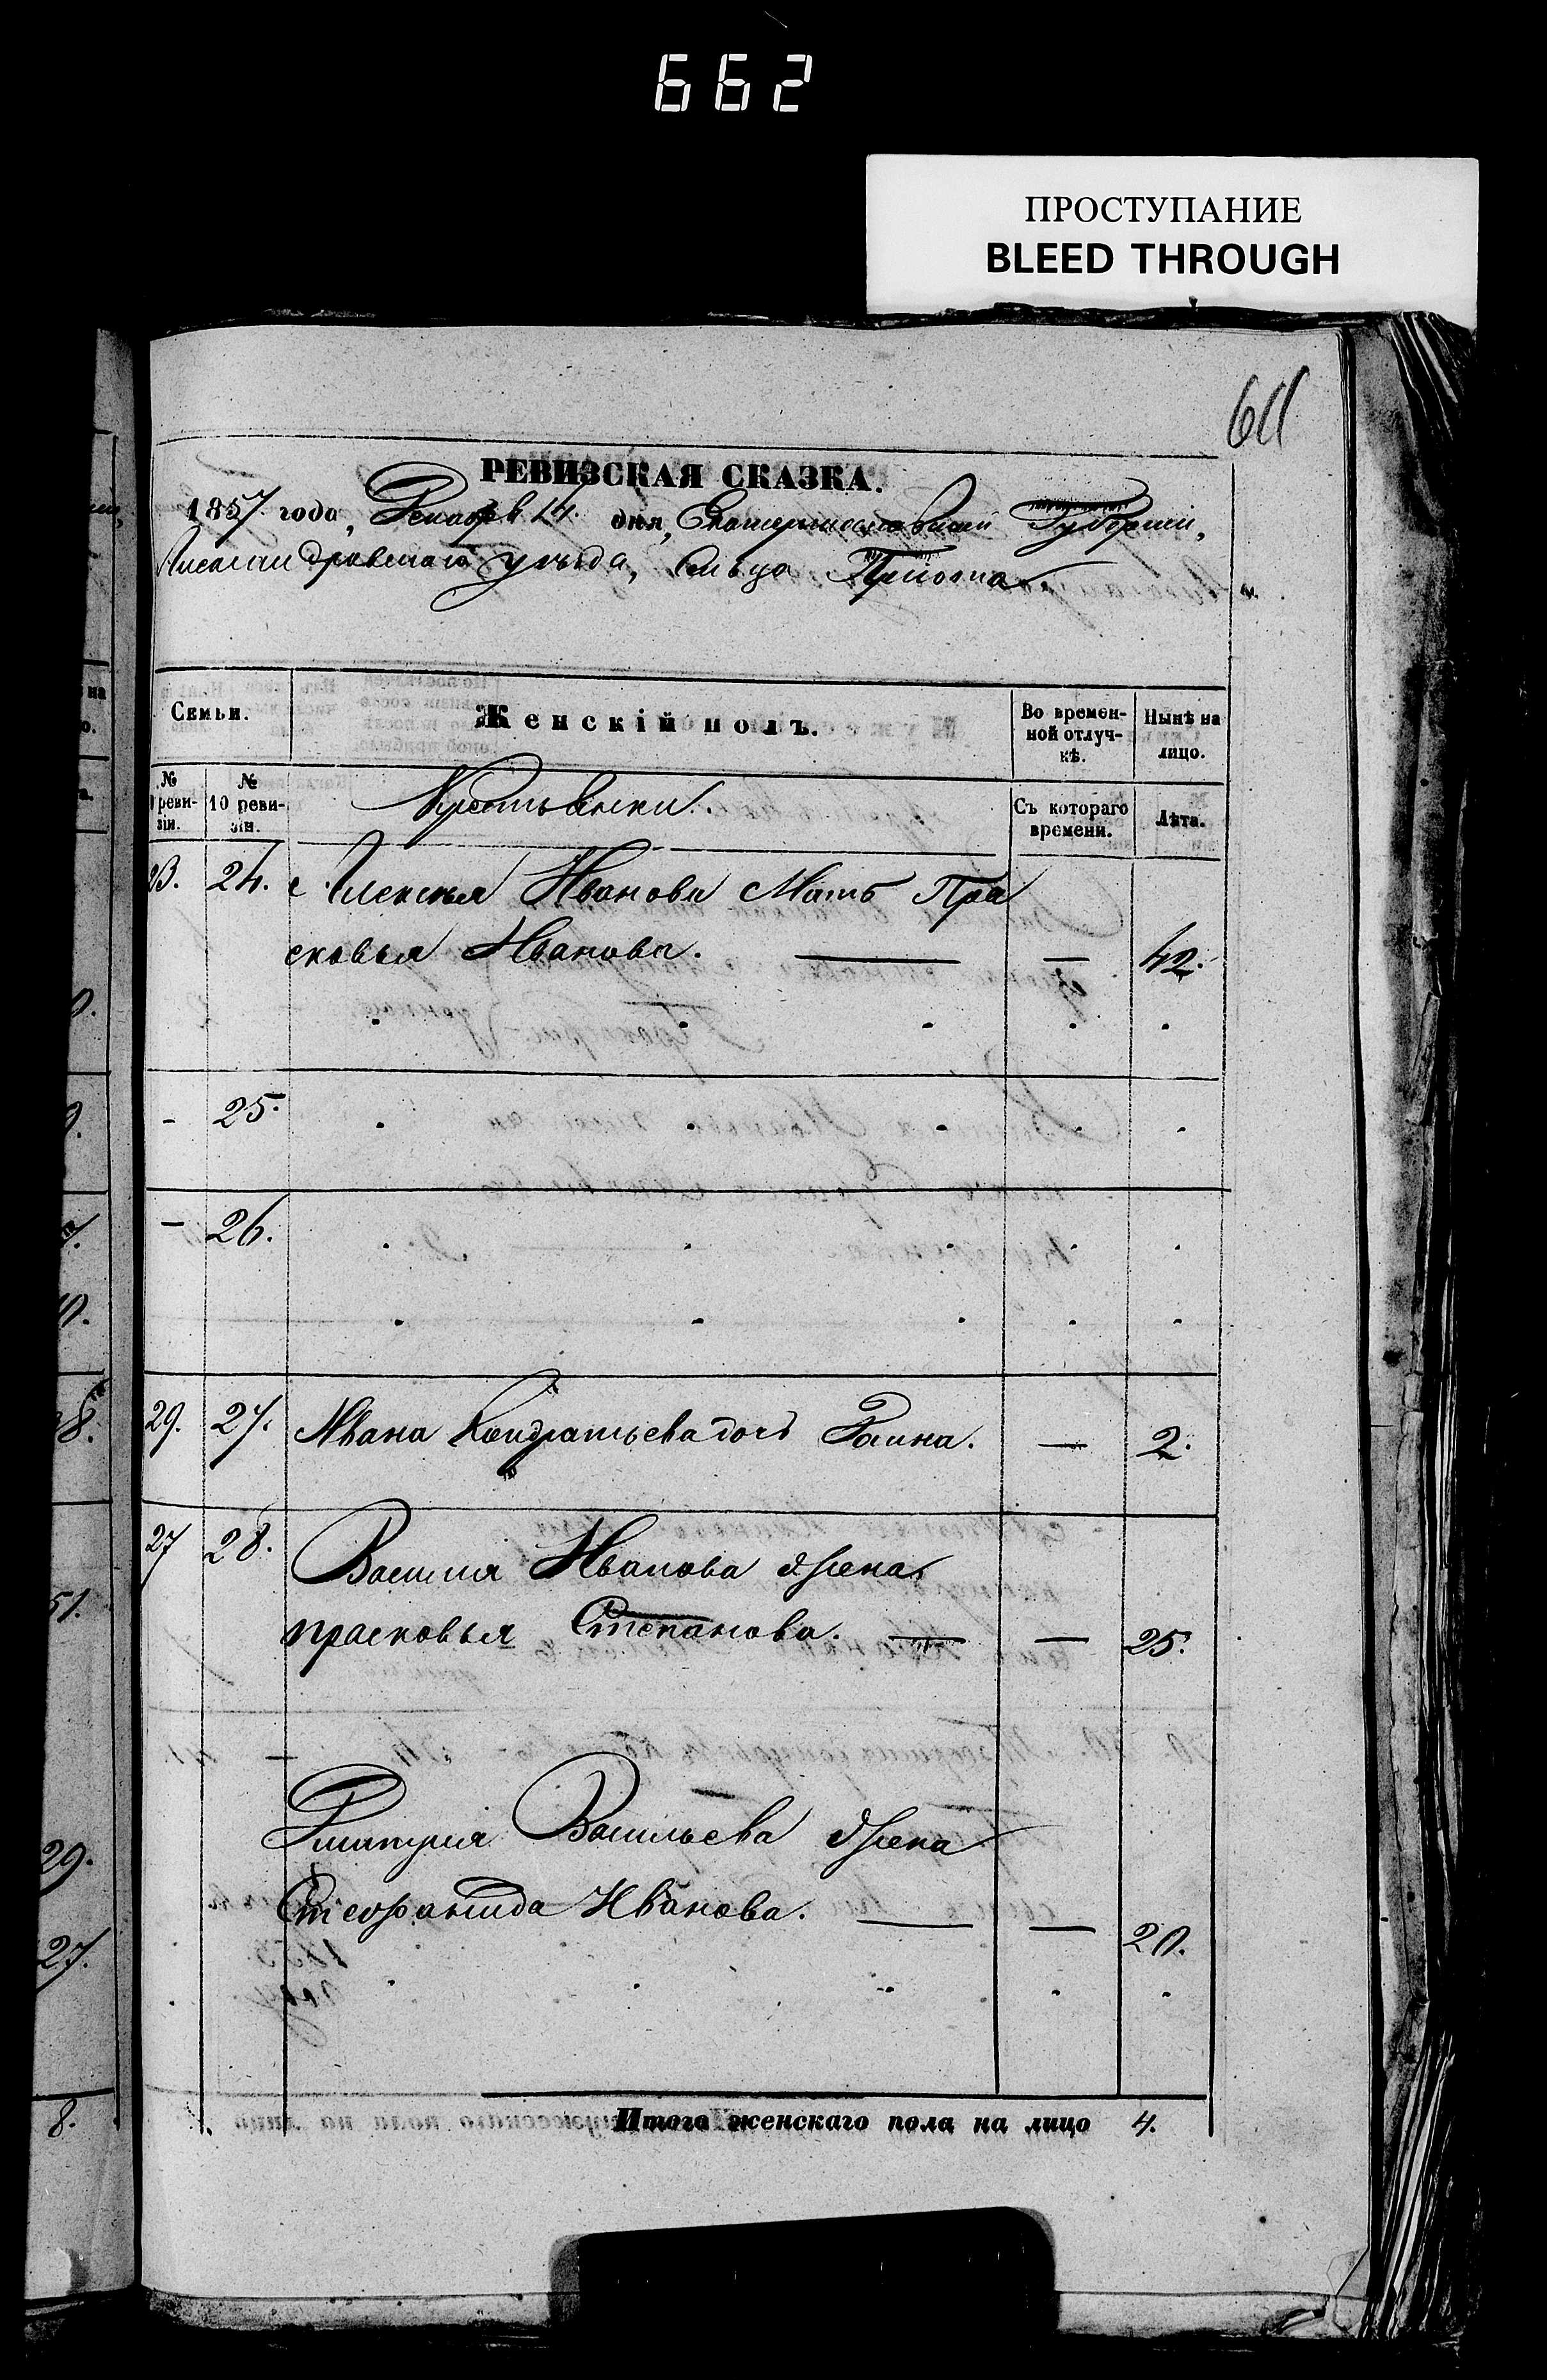 662
ПРОСТУПАНИЕ
BLEED THROUGH
611
РЕВИЗСКАЯ СКАЗКА.
1857 года, Декабря 14. дня, Екатеринославской Губерніи,
Александровскаго уѣзда, сельца
Семьи.
Женскій полъ.
Во времен-
ной отлуч-
кѣ.
Нынѣ на
лицо.
№
реви-
зіи.
№
10 реви-
зіи.
Крестьянки.
Съ котораго
времени.
Лѣта.
23. 24. Алексѣя Иванова Мать Пра
сковья Иванова. — — 42.
- 25.
- 26.
29. 27. Ивана Кондратьева дочь — 2.
27 28. Василия Иванова жена
прасковья Степанова. — — 25.
Дмитрия Васильева жена
Стефанида Иванова. — — 20.
Итого женскаго пола на лицо 4.